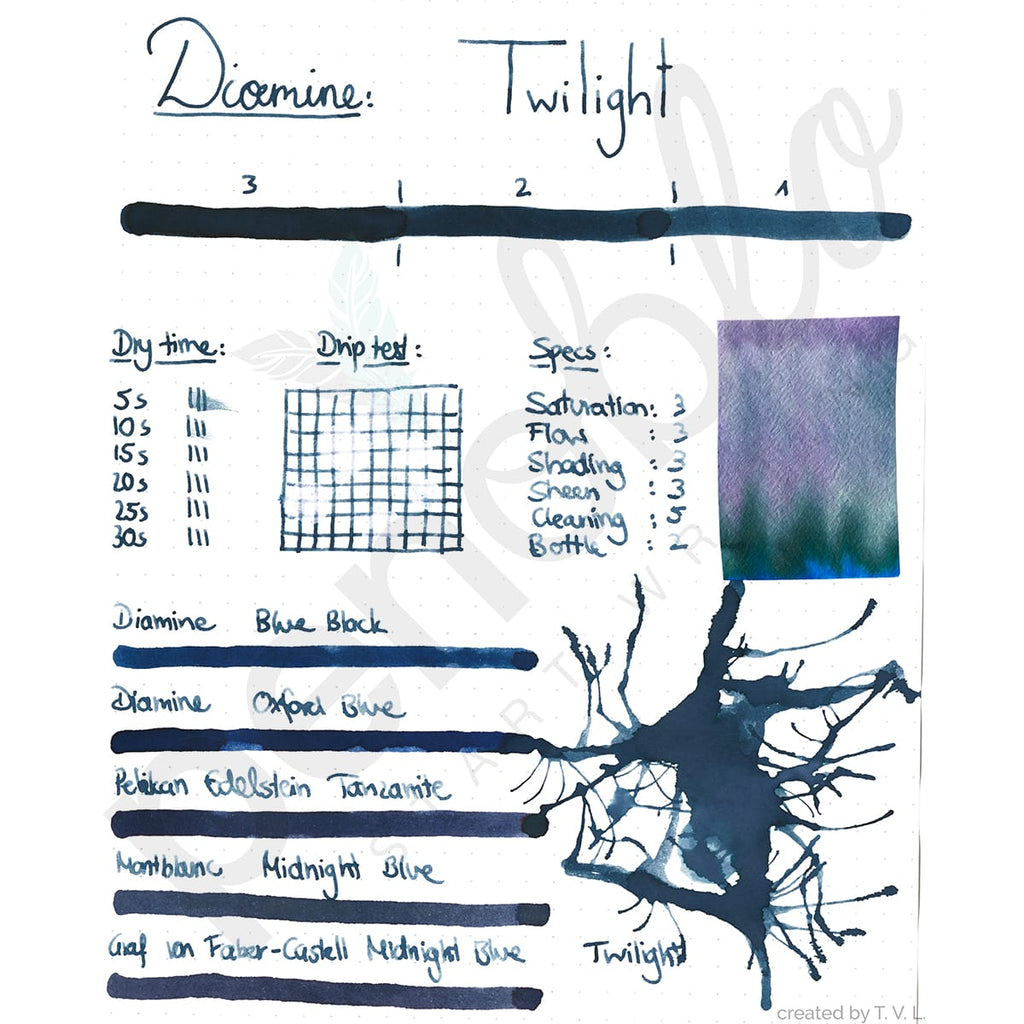 Diamine: Twilight
3 | 2 | 1
Dry time:
5s
10s
15s
20s
25s
30s
Drip test:
Specs:
Saturation: 3
Flow : 3
Shading : 3
Sheen : 3
Cleaning : 5
Bottle : 2
Diamine Blue Black
Diamine Oxford Blue
Pelikan Edelstein Tanzanite
Montblanc Midnight Blue
Graf von Faber-Castell Midnight Blue
Twilight
penoblo
START WR
created by T. V. L.